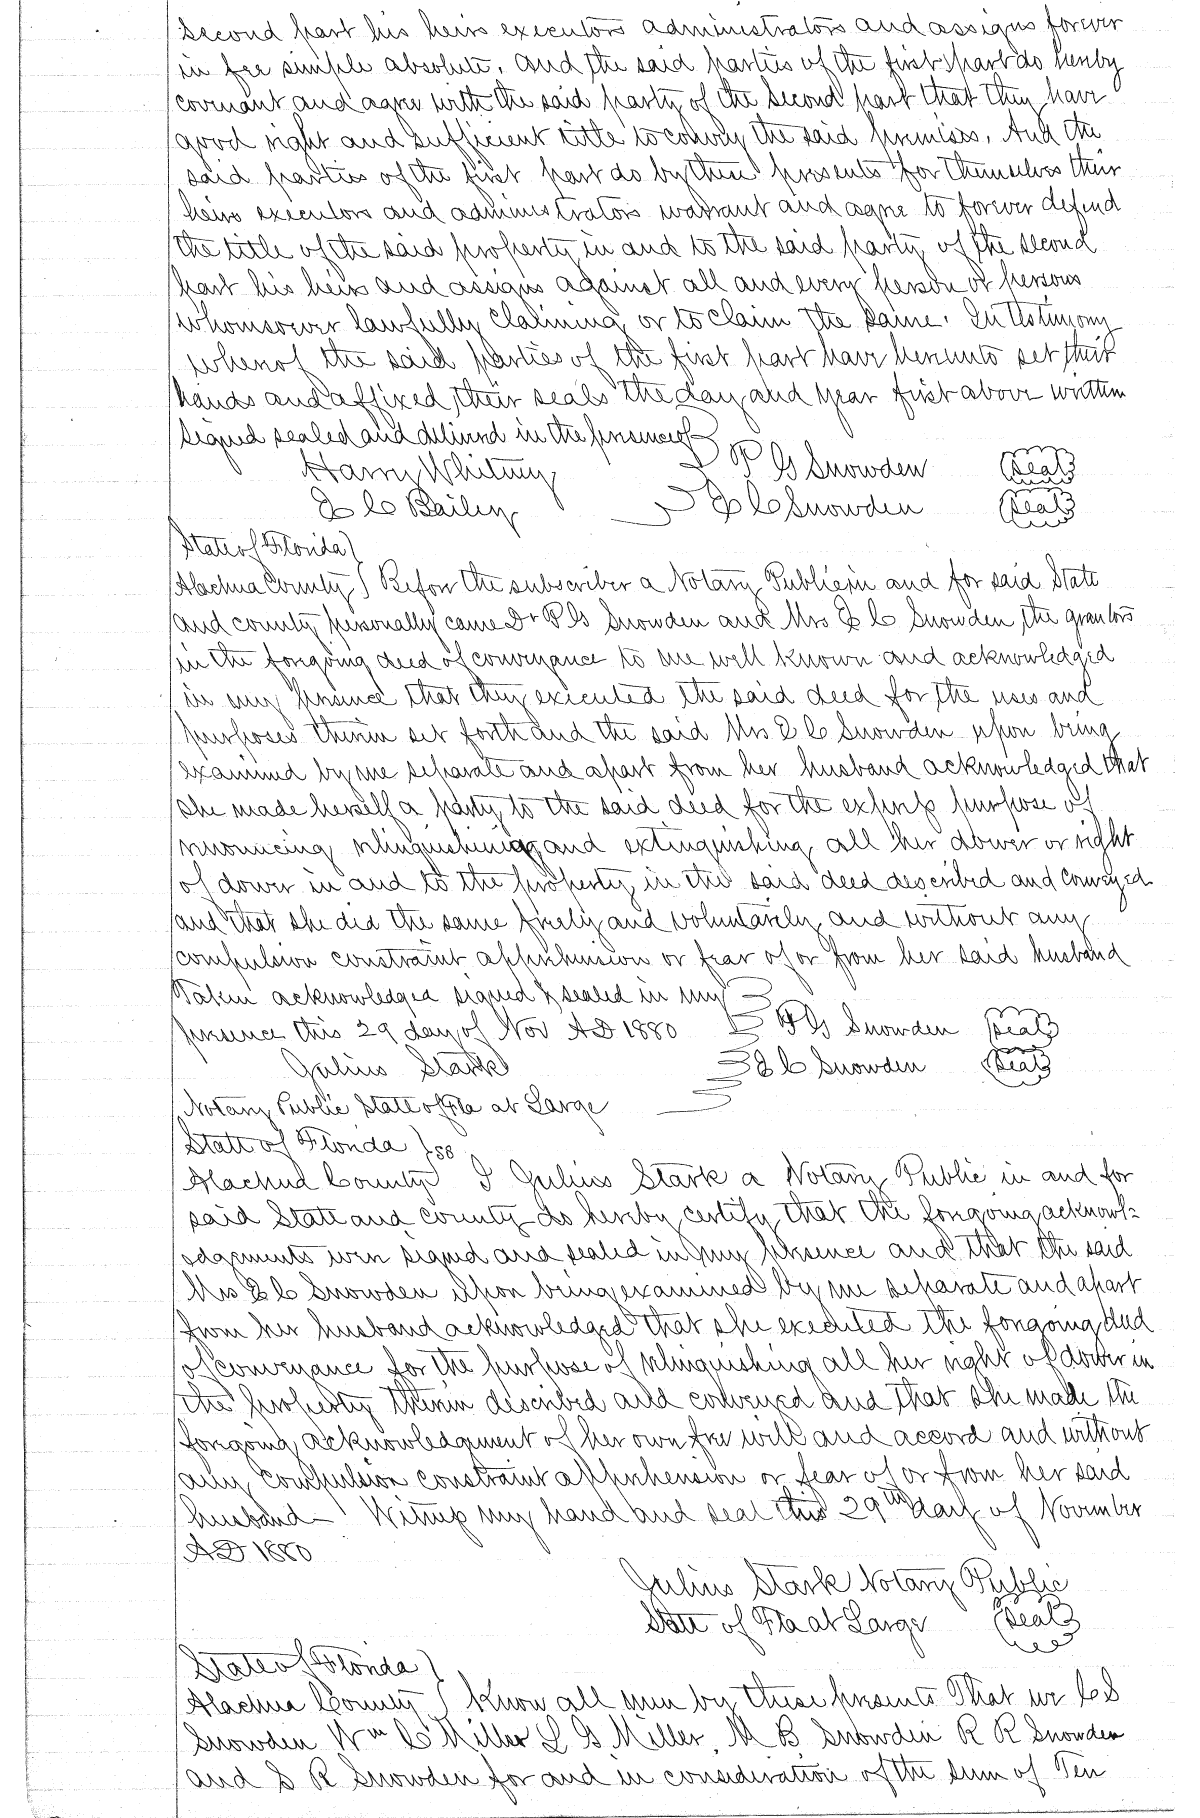 second part his heirs executors administrators and assigns forever
in fee simple absolute. And the said parties of the first part do hereby
covenant and agree with the said party of the second part that they have
good right and sufficient title to convey the said premises. And the
said parties of the first part do by these presents for themselves their
heirs executors and administrators warrant and agree to forever defend
the title of the said property in and to the said party of the second
part his heirs and assigns against all and every person or persons
whomsoever lawfully claiming or to claim the same. In testimony
whereof the said parties of the first part have hereunto set their
hands and affixed their seals the day and year first above written
Signed sealed and delivered in the presence of
Harry Whitney P G Snowden (Seal)
E C Bailey E C Snowden (Seal)
State of Florida }
Alachua County } Before the subscriber a Notary Public in and for said State
and county personally came Dr P G Snowden and Mrs E C Snowden the grantors
in the foregoing deed of conveyance to me well known and acknowledged
in my presence that they executed the said deed for the uses and
purposes therein set forth and the said Mrs E C Snowden upon being
examined by me separate and apart from her husband acknowledged that
she made herself a party to the said deed for the express purpose of
renouncing relinquishing and extinguishing all her dower or right
of dower in and to the property in the said deed described and conveyed
and that she did the same freely and voluntarily and without any
compulsion constraint apprehension or fear of or from her said husband
Taken acknowledged signed & sealed in my
presence this 29 day of Nov AD 1880 P G Snowden (Seal)
Julius Stark E C Snowden (Seal)
Notary Public State of Fla at Large
State of Florida } ss
Alachua County } I Julius Stark a Notary Public in and for
said State and county do hereby certify that the foregoing acknowl-
edgements were signed and sealed in my presence and that the said
Mrs E C Snowden upon being examined by me separate and apart
from her husband acknowledged that she executed the foregoing deed
of conveyance for the purpose of relinquishing all her right of dower in
the property therein described and conveyed and that she made the
foregoing acknowledgment of her own free will and accord and without
any compulsion constraint apprehension or fear of or from her said
husband - Witness my hand and seal this 29th day of November
AD 1880
Julius Stark Notary Public
State of Fla at Large (Seal)
State of Florida }
Alachua County } Know all men by these presents That we C S
Snowden Wm C Miller L G Miller, M B Snowden R R Snowden
and S R Snowden for and in consideration of the sum of Ten